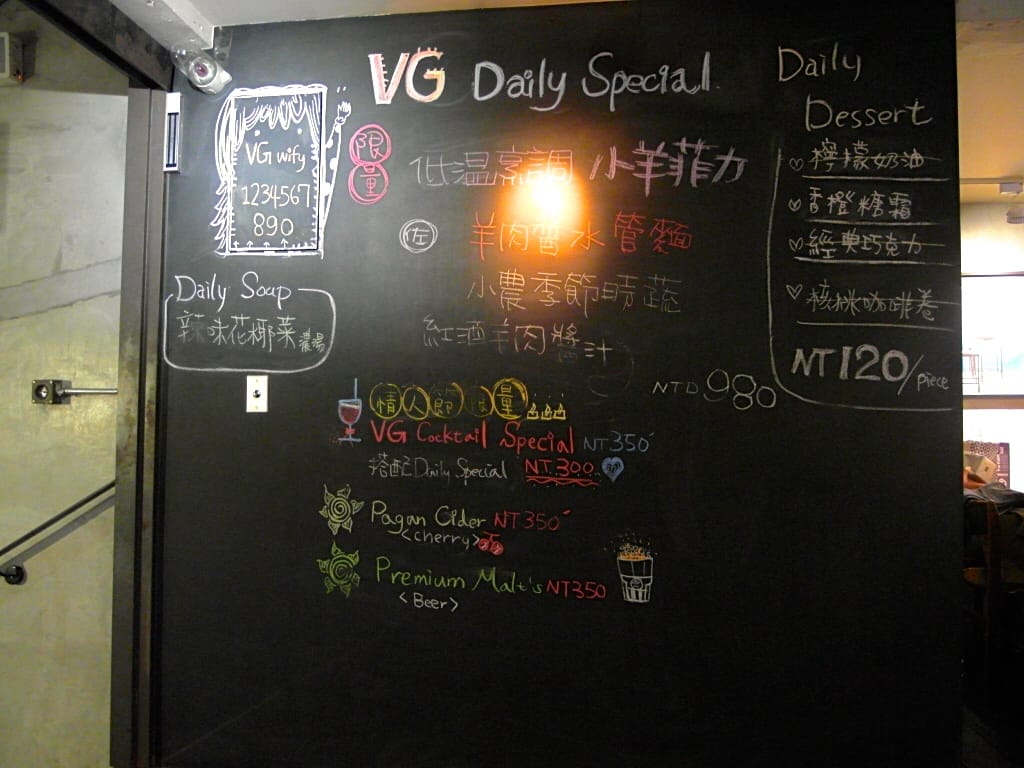 VG Daily Special
VG wify
1234567
890
限量
低溫烹調 小羊菲力
佐 羊肉醬水管麵
小農季節時蔬
紅酒羊肉醬汁
NTD 980
Daily Soup
辣味花椰菜濃湯
情人節限量
VG Cocktail Special NT350
搭配Daily Special NT.300
Pagan Cider NT350
<cherry>
Premium Malt's NT350
<Beer>
Daily
Dessert
檸檬奶油
香橙糖霜
經典巧克力
核咪咖啡卷
NT120/piece